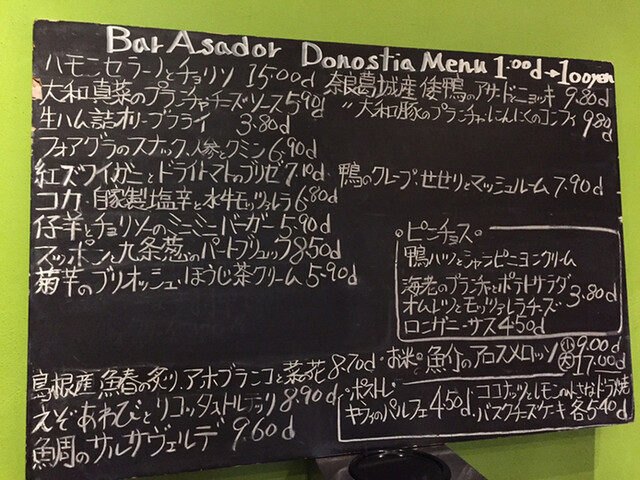 Bar Asador Donostia Menu 1.00d→100yen
ハモンセラーノとチョリソ 15.00d
大和真菜のプランチャ チーズソース 5.90d
生ハム詰オリーブフライ 3.80d
フォアグラのスナック、人参とクミン 6.90d
紅ズワイガニとドライトマトのブリゼ 7.10d
コカ、自家製塩辛と水牛モッツァレラ 6.80d
仔羊とチョリソーのミニミニバーガー 5.90d
スッポンと九条葱のパートブリック 8.50d
菊芋のブリオッシュ、ほうじ茶クリーム 5.90d
島根産 鰆の炙り、アホブランコと菜の花 8.70d
えぞあわびとリコッタストルテッリ 8.90d
鯛のサルサヴェルデ 9.60d
奈良葛城産 倭鴨のアサードとニョッキ 9.80d
〃 大和豚のプランチャ、にんにくのコンフィ 9.80d
鴨のクレープ、せせりとマッシュルーム 7.90d
ピンチョス
鴨ハツとシャンピニョンクリーム
海老のプランチャとポテトサラダ
オムレツとモッツァレラチーズ 3.80d
ロンガニーサス 4.50d
お米と魚介のアロスメロッソ 小 9.00d
大 17.00d
ポストレ
キウイのパルフェ 4.50d
ココナッツとレモンの小さなドラ焼
バスクチーズケーキ 各5.40d